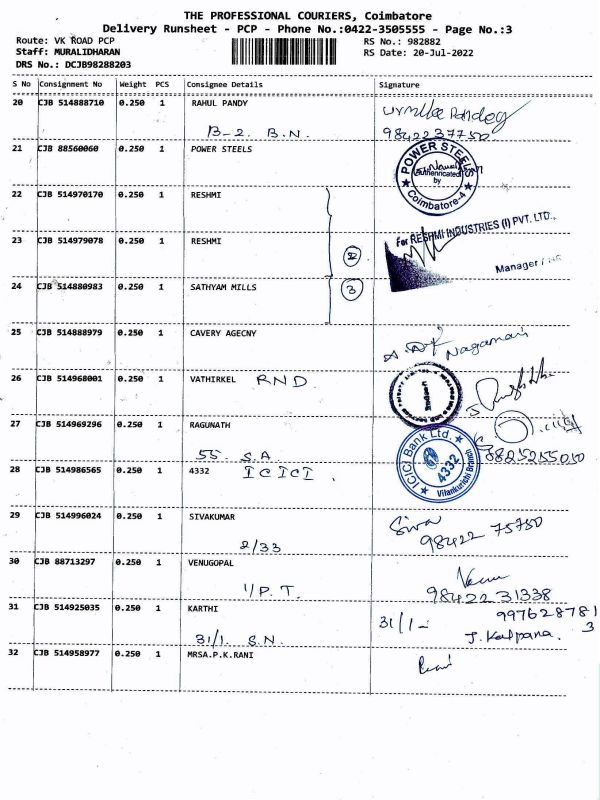 THE PROFESSIONAL COURIERS, Coimbatore
Delivery Runsheet - PCP - Phone No.:0422-3505555 - Page No.:3
Route: VK ROAD PCP
RS No.: 982882
Staff: MURALIDHARAN
RS Date: 20-Jul-2022
DRS No.: DCJB98288203
S No Consignment No Weight PCS Consignee Details Signature
20 CJB 514888710 0.250 1 RAHUL PANDY
B-2. B.N. 9842237750
21 CJB 88560060 0.250 1 POWER STEELS
POWER STEELS
Authenticated
by
Coimbatore-4
22 CJB 514970170 0.250 1 RESHMI
For RESHMI INDUSTRIES (I) PVT. LTD.,
23 CJB 514979078 0.250 1 RESHMI
2
Manager
24 CJB 514880983 0.250 1 SATHYAM MILLS
3
25 CJB 514888979 0.250 1 CAVERY AGECNY
Nagamani
26 CJB 514968001 0.250 1 VATHIRKEL RND
27 CJB 514969296 0.250 1 RAGUNATH
55. S.A
8825255050
28 CJB 514986565 0.250 1 4332 ICICI.
ICICI Bank Ltd.
4332
Vilankurichi Branch
29 CJB 514996024 0.250 1 SIVAKUMAR Siva
2/33 98422 75750
30 CJB 88713297 0.250 1 VENUGOPAL
1/P.T. 98422 31338
31 CJB 514925035 0.250 1 KARTHI 31/1- 997628781
3
31/1. S.N. J. Kalpana.
32 CJB 514958977 0.250 1 MRSA.P.K.RANI Rani